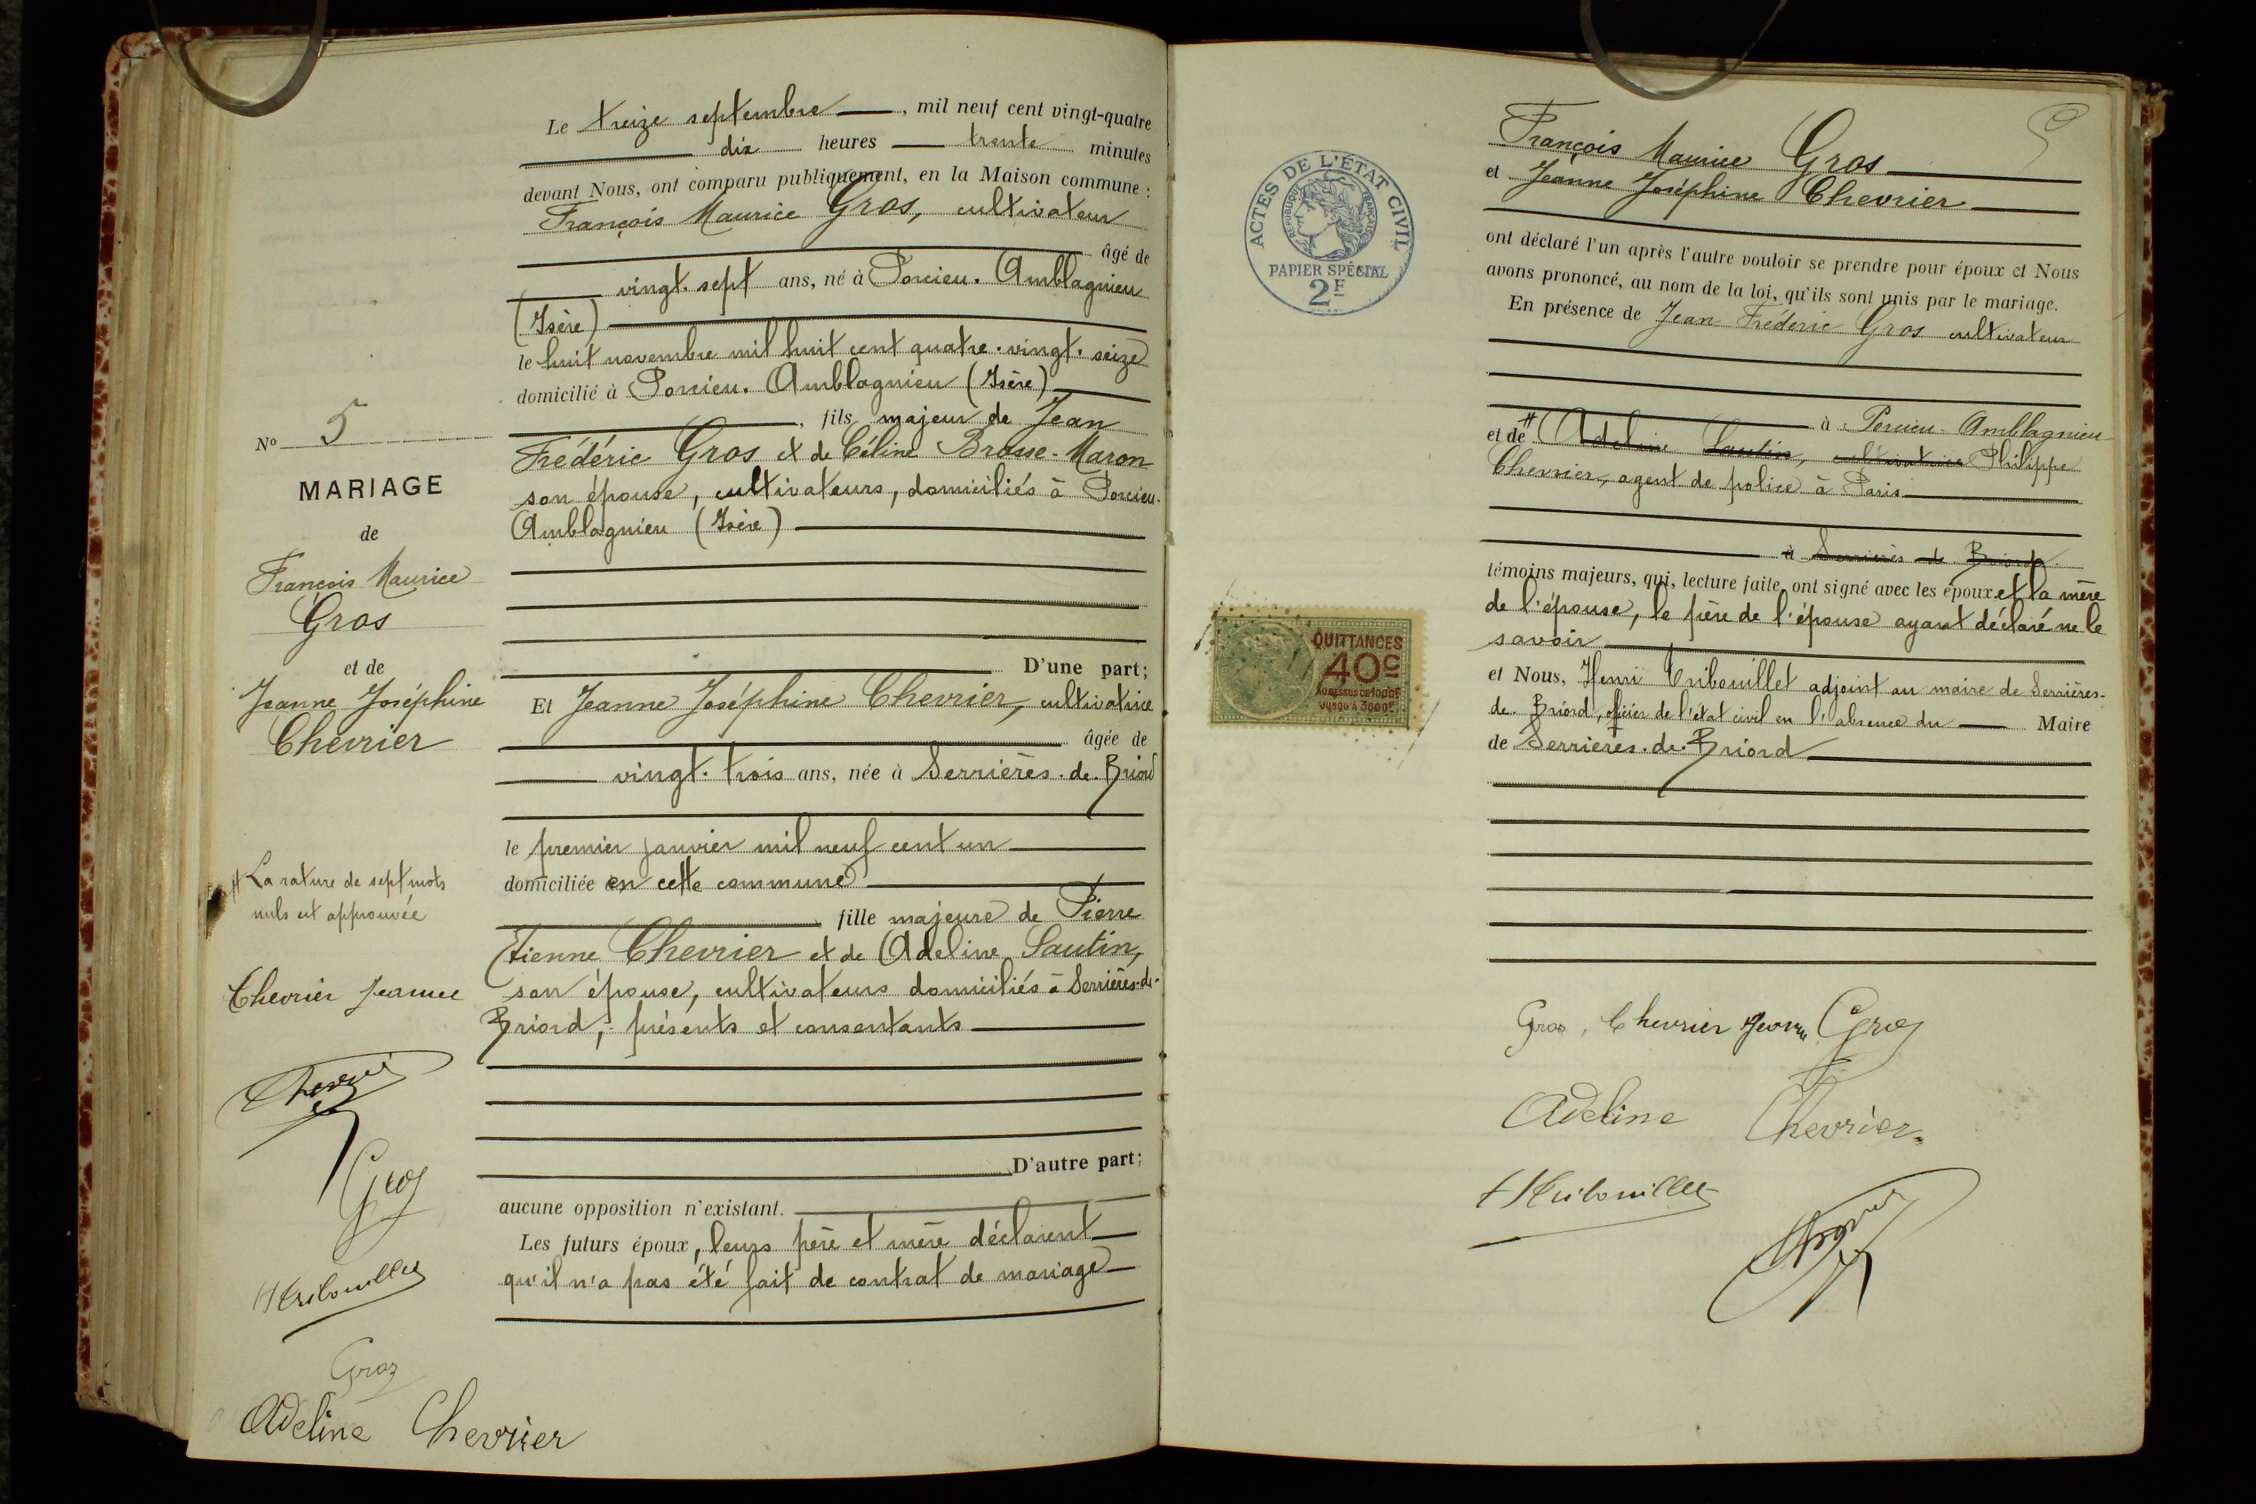 Le treize septembre, mil neuf cent vingt-quatre
dix heures trente minutes
devant Nous, ont comparu publiquement, en la Maison commune :
François Maurice Gros, cultivateur
âgé de
vingt-sept ans, né à Porcieu-Amblagnieu
(Isère)
le huit novembre mil huit cent quatre-vingt-seize
domicilié à Porcieu-Amblagnieu (Isère)
, fils majeur de Jean
Frédéric Gros et de Céline Brosse-Maron
son épouse, cultivateurs, domiciliés à Porcieu-
Amblagnieu (Isère)
D'une part;
Et Jeanne Joséphine Chevrier, cultivatrice
âgée de
vingt-trois ans, née à Serrières-de-Briord
le premier janvier mil neuf cent un
domiciliée en cette commune
fille majeure de Pierre
Etienne Chevrier et de Adeline Sautin,
son épouse, cultivateurs domiciliés à Serrières-de-
Briord, présents et consentants
D'autre part;
aucune opposition n'existant.
Les futurs époux, leurs père et mère déclarent
qu'il n'a pas été fait de contrat de mariage
No 5
MARIAGE
de
François Maurice
Gros
et de
Jeanne Joséphine
Chevrier
# La rature de sept mots
nuls est approuvée
Chevrier Jeanne
Chevrier
Gros
HTribouillet
Gros
Adeline Chevrier
ACTES DE L'ÉTAT CIVIL
RÉPUBLIQUE FRANÇAISE
PAPIER SPÉCIAL
2F
QUITTANCES
40c
AU DESSUS DE 1000F
JUSQU'À 3000F
François Maurice Gros
et Jeanne Joséphine Chevrier
ont déclaré l'un après l'autre vouloir se prendre pour époux et Nous
avons prononcé, au nom de la loi, qu'ils sont unis par le mariage.
En présence de Jean Fréderic Gros cultivateur
à Porcieu-Amblagnieu
et de # Adeline Sautin, cultivatrice Philippe
Chevrier, agent de police à Paris
à Serrières de Briord
témoins majeurs, qui, lecture faite, ont signé avec les époux et la mère
de l'épouse, le père de l'épouse ayant déclaré ne le
savoir
et Nous, Henri Tribouillet adjoint au maire de Serrières-
de-Briord, officier de l'état civil en l'absence du Maire
de Serrières-de-Briord
Gros, Chevrier Jeanne Gros
Adeline Chevrier
HTribouillet
Chevrier